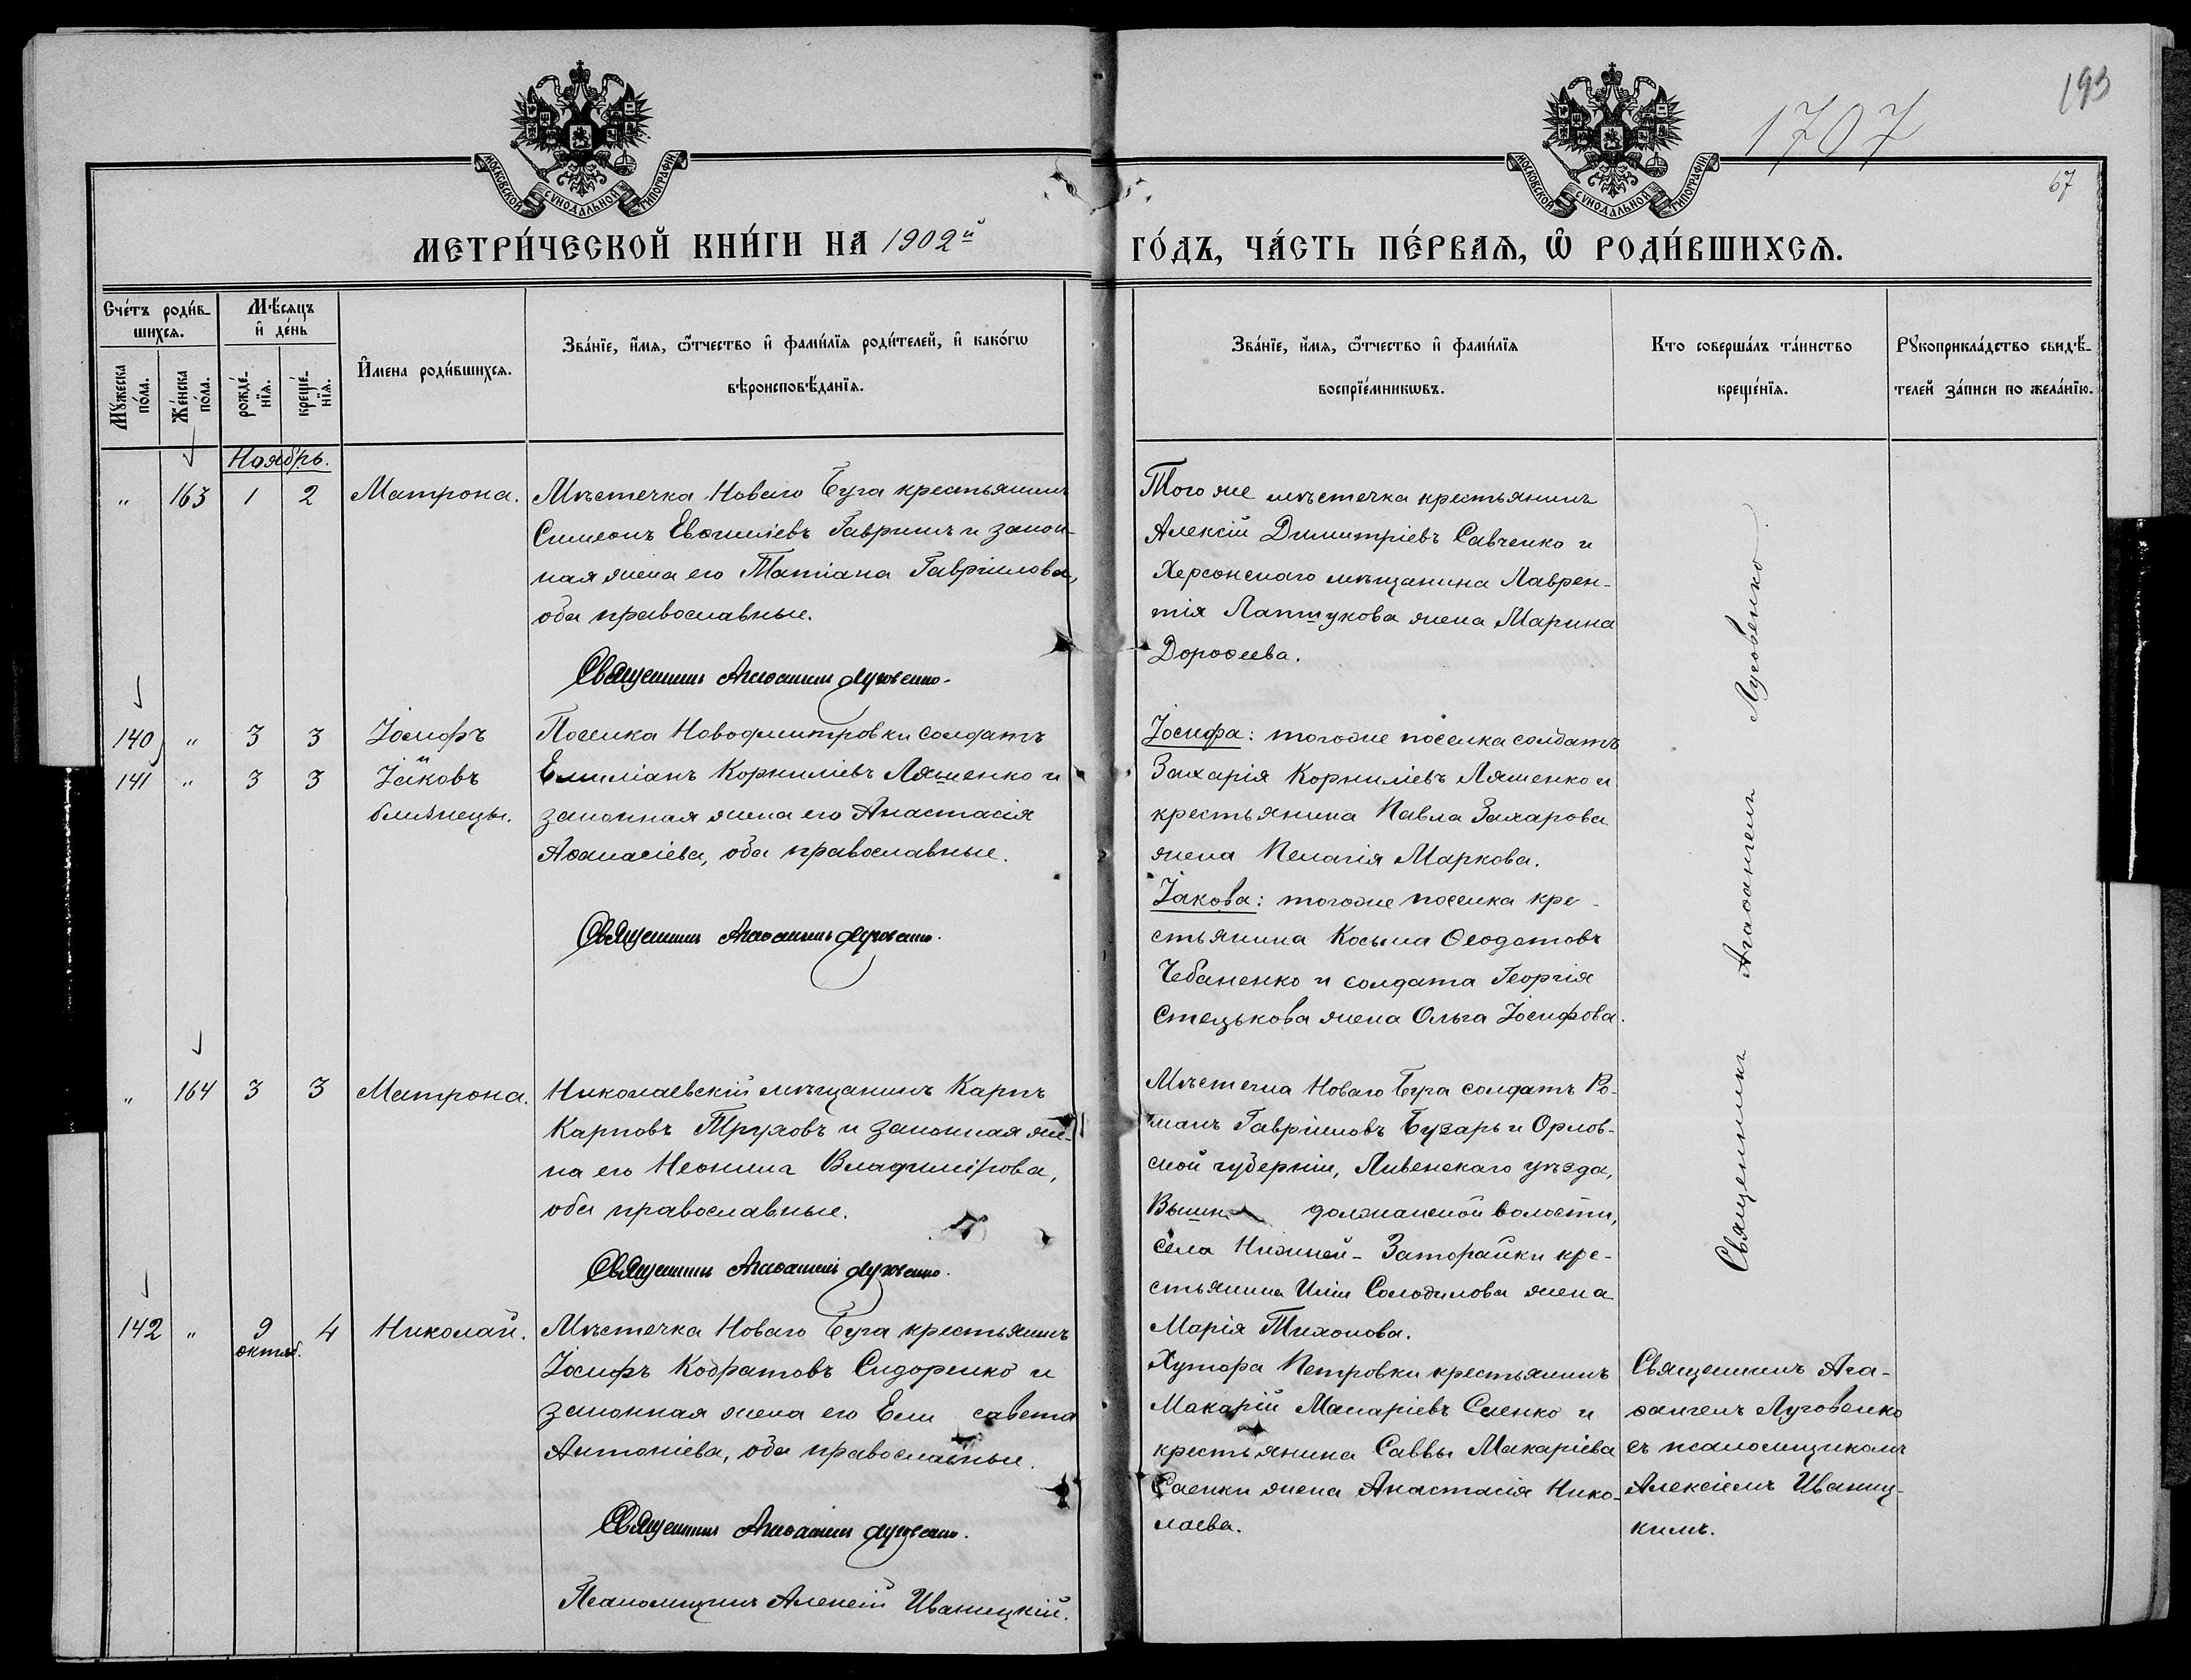 193
1707
67
МОСКОВСКОЙ СѴНОДАЛЬНОЙ ТИПОГРАФІИ.
МОСКОВСКОЙ СѴНОДАЛЬНОЙ ТИПОГРАФІИ.
МЕТРИ́ЧЕСКОЙ КНИ́ГИ НА 1902й
ГО́ДЪ, ЧА́СТЬ ПЕ́РВАѦ, Ѽ РОДИ́ВШИХСѦ.
Сче́тъ роди́в-
шихсѧ.
Мꙋ́жеска по́ла.
Же́нска по́ла.
Мѣ́сѧцъ
и҆ де́нь
рожде́-нїѧ.
креще́-нїѧ.
И҆мена роди́вшихсѧ.
Зва́нїе, и҆́мѧ, ѻ҆́тчество и҆ фами́лїѧ роди́телей, и҆ како́гѡ
вѣроисповѣ́данїѧ.
Зва́нїе, и҆́мѧ, ѻ҆́тчество и҆ фами́лїѧ
воспрїе́мникѡвъ.
Кто соверша́лъ та́инство
креще́нїѧ.
Рꙋкоприкла́дство свидѣ́-
телей за́писи по жела́нїю.
Ноябрь.
" 163 1 2 Матрона.
Мѣстечка Новаго Буга крестьянинъ
Симеонъ Евѳиміевъ Гавришъ и закон-
ная жена его Татіана Гавріилова,
оба православные.
Священникъ Агаѳангелъ Луговенко.
Того же мѣстечка крестьянинъ
Алексій Димитріевъ Савченко и
Херсонскаго мѣщанина Лаврен-
тія Лапшукова жена Марина
Дороѳеева.
140 " 3 3 Іосифъ
и
141 " 3 3 Іаковъ
близнецы.
Поселка Новодмитровки солдатъ
Емиліанъ Корниліевъ Ляшенко и
законная жена его Анастасія
Аѳанасіева, оба православные.
Священникъ Агаѳангелъ Луговенко.
Іосифа: тогоже поселка солдатъ
Захарія Корниліевъ Ляшенко и
крестьянина Павла Захарова
жена Пелагія Маркова.
Іакова: тогоже поселка кре-
стьянина Косьма Ѳеодотовъ
Чебаненко и солдата Георгія
Стецькова жена Ольга Іосифова.
" 164 3 3 Матрона.
Николаевскій мѣщанинъ Карпъ
Карповъ Труховъ и законная же-
на его Неонила Владимірова,
оба православные.
Священникъ Агаѳангелъ Луговенко.
Мѣстечка Новаго Буга солдатъ Ро-
манъ Гавріиловъ Бузарь и Орлов-
ской губерніи, Ливенскаго уѣзда,
Вышне должанской волости,
села Нижней-Заторайки кре-
стьянина Иліи Солодилова жена
Марія Тихонова.
Священникъ Агаѳангелъ Луговенко
142 " 9 4 Николай.
октяб.
Мѣстечка Новаго Буга крестьянинъ
Іосифъ Кодратовъ Сидоренко и
законная жена его Ели савета
Антоніева, оба православные.
Священникъ Агаѳангелъ Луговенко.
Псаломщикъ Алексій Иваницкій.
Хутора Петровки крестьянинъ
Макарій Макаріевъ Саенко и
крестьянина Саввы Макаріева
Саенки жена Анастасія Нико-
лаева.
Священникъ Ага-
ѳангелъ Луговенко
съ псаломщикомъ
Алексіемъ Иваниц-
кимъ.